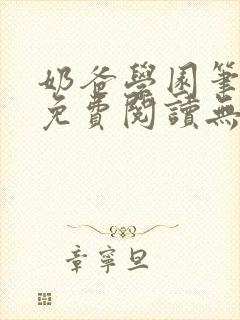 奶爸學園筆
免費閱讀無
章寧旦